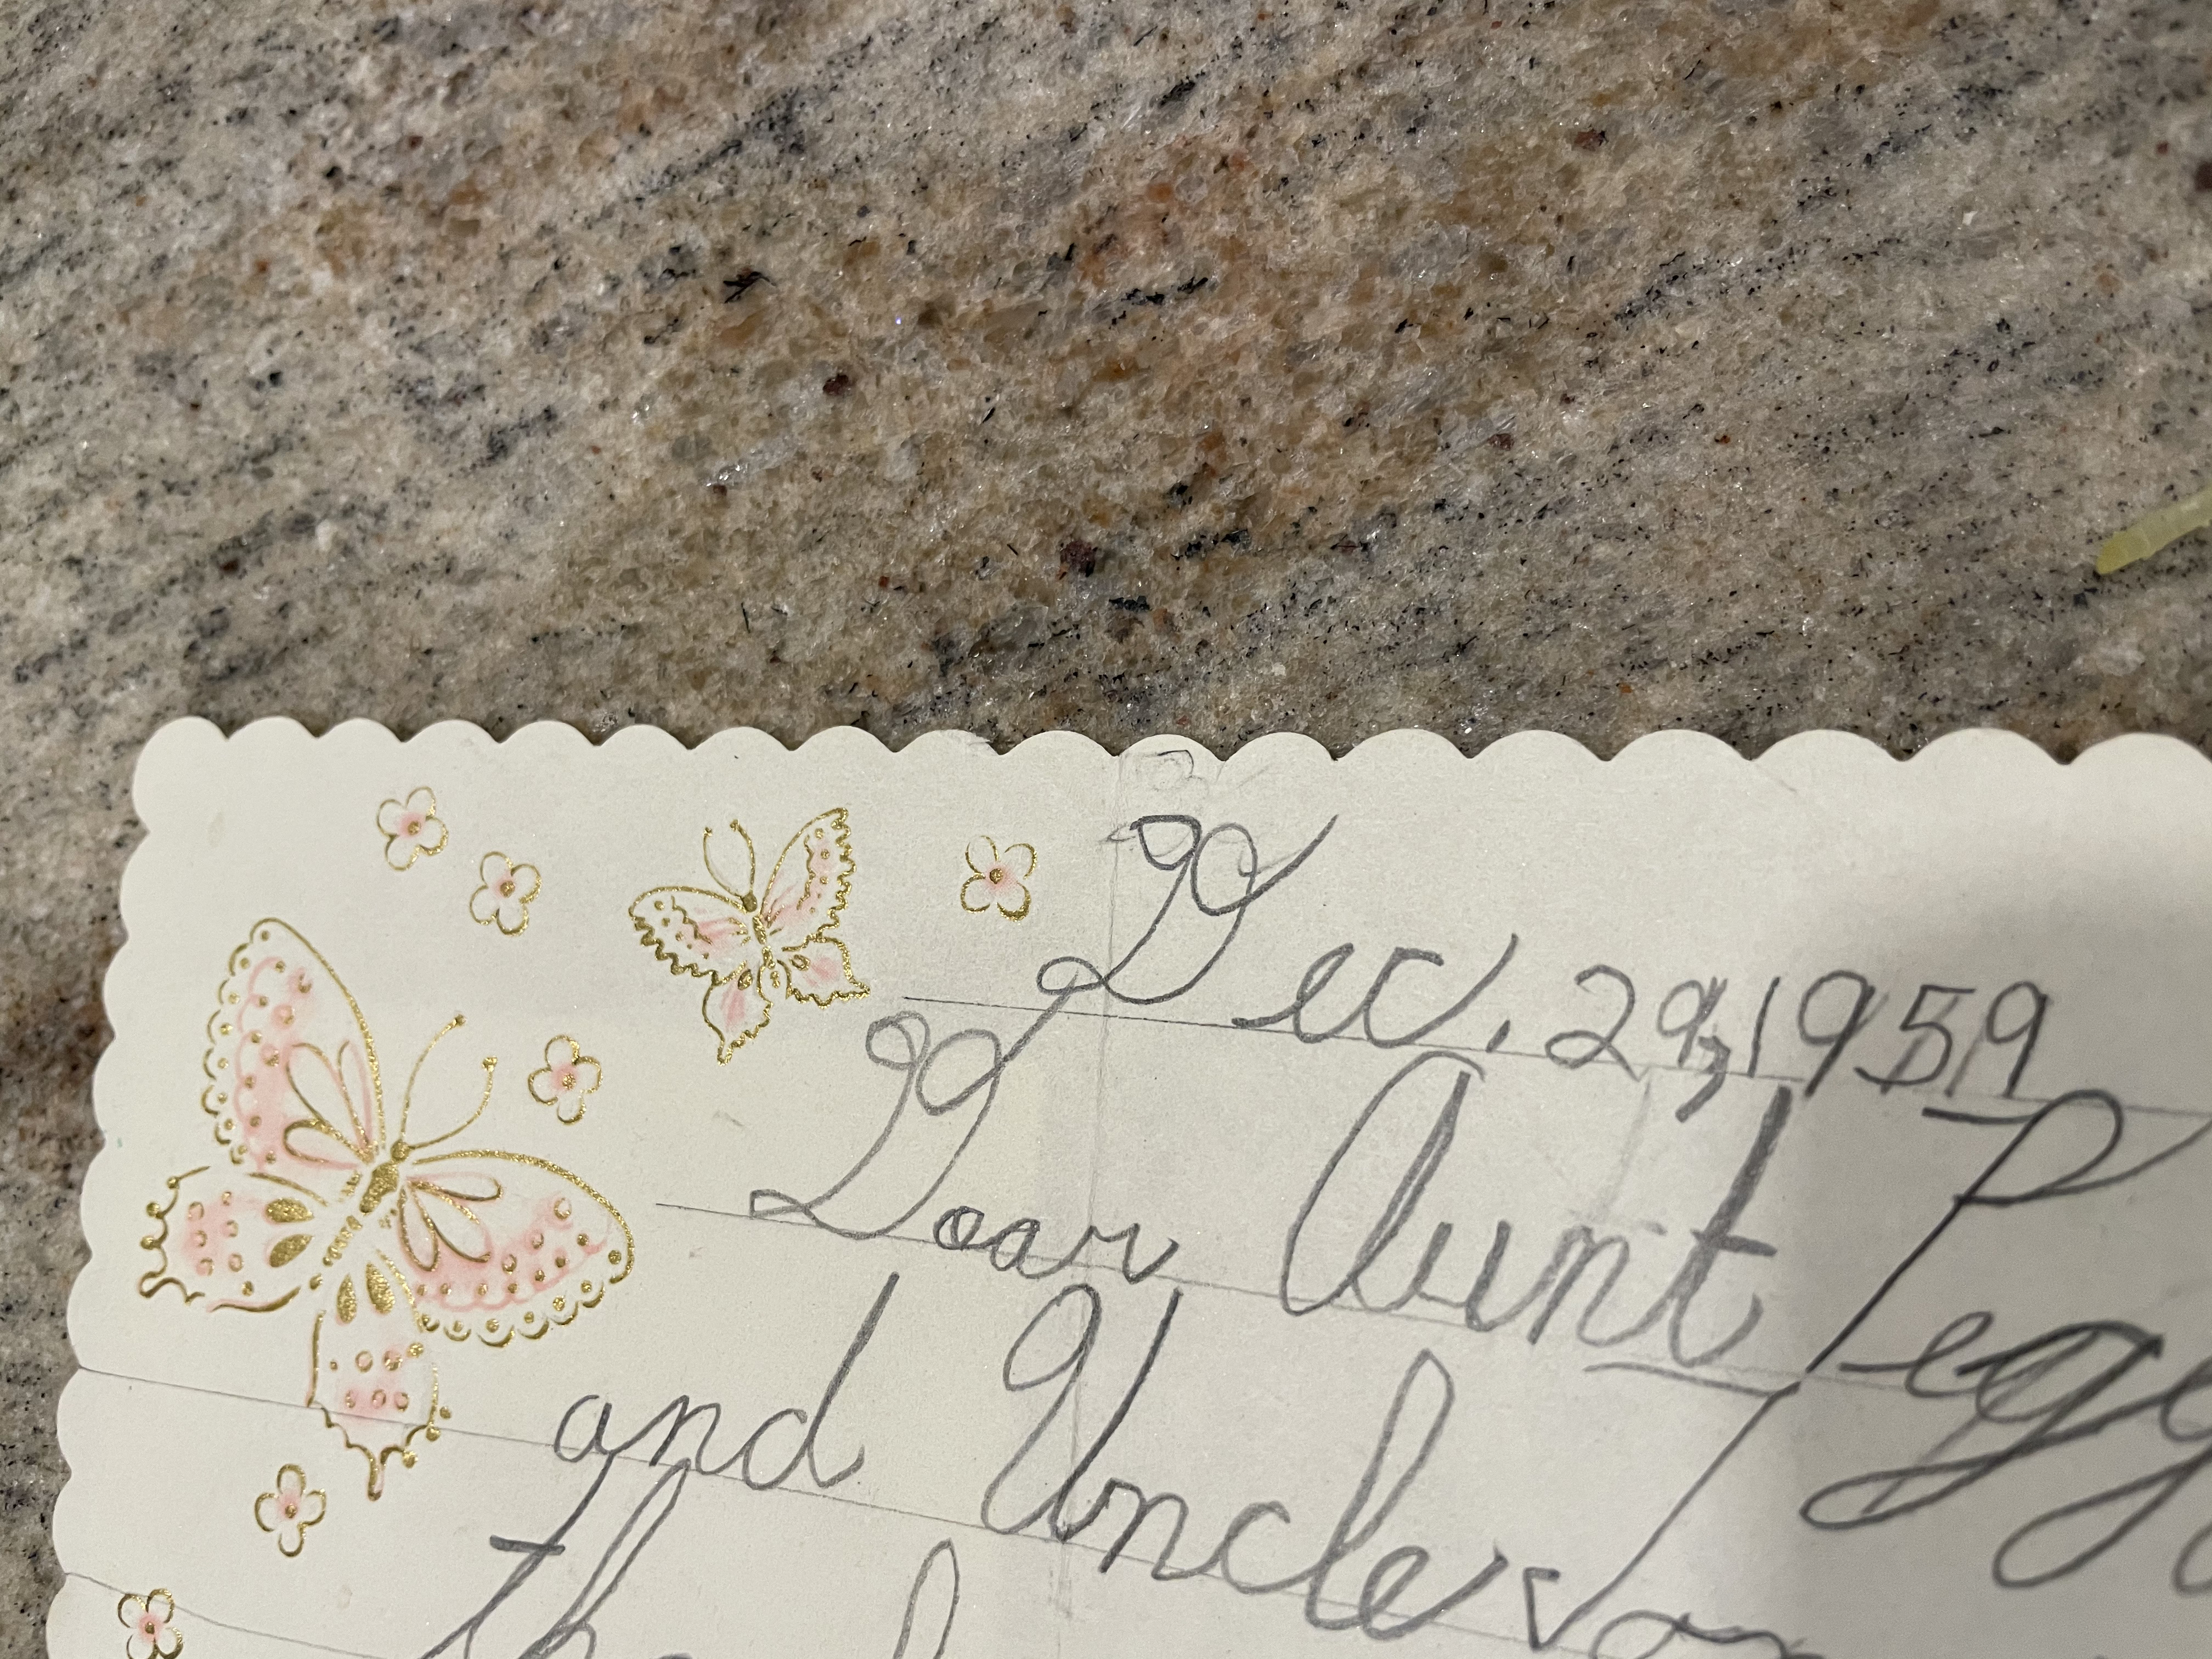 Dec. 29, 1959
Dear Aunt Peggy
and Uncle